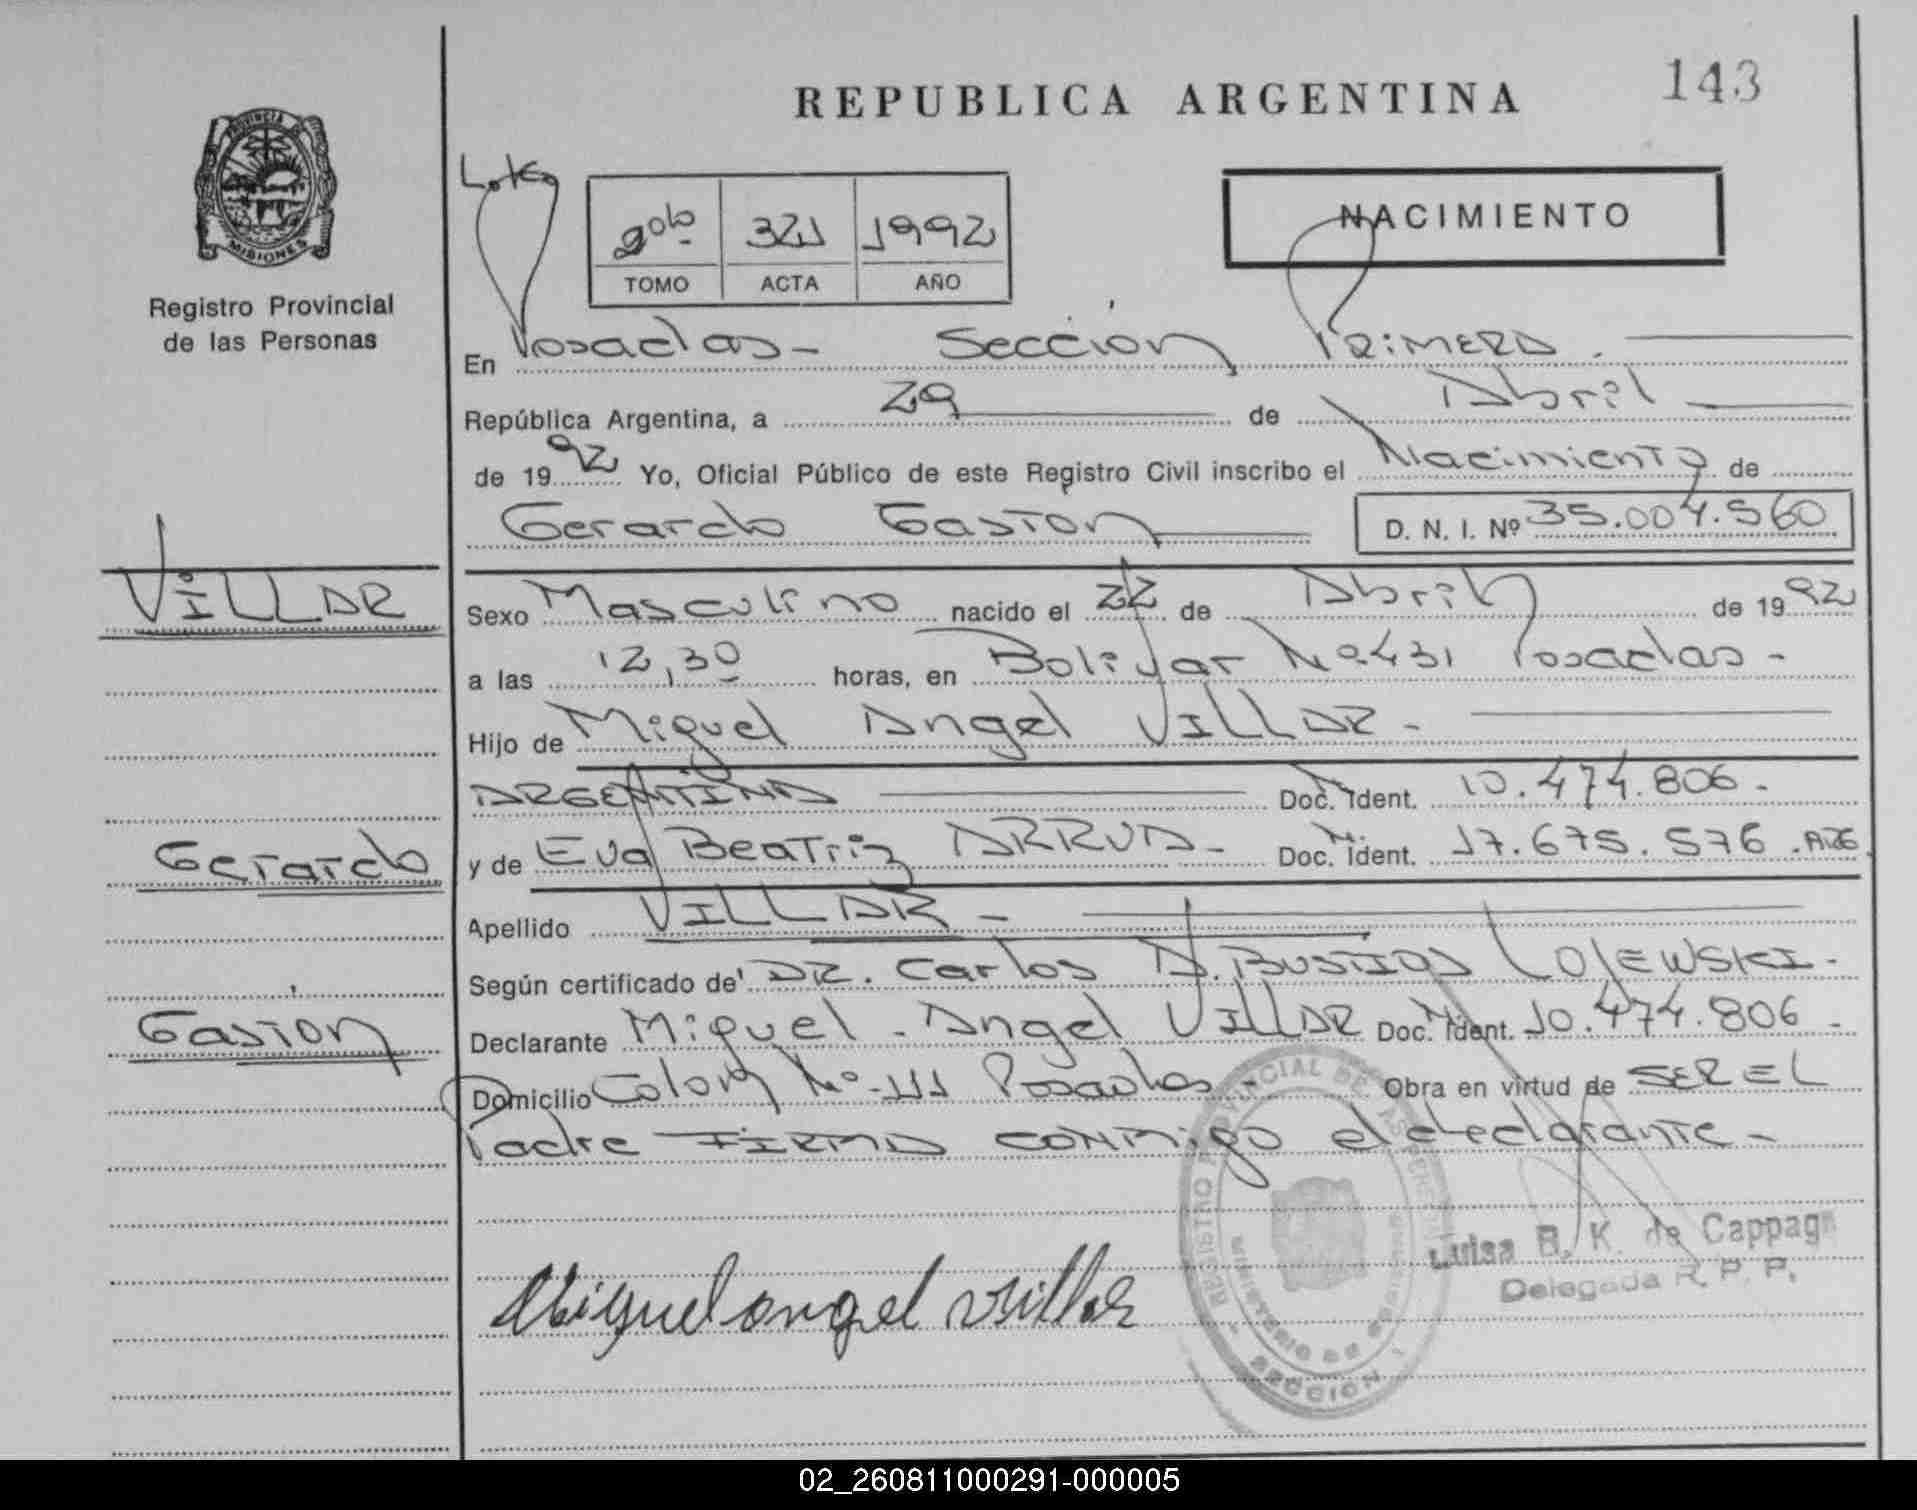 REPUBLICA ARGENTINA
143
PROVINCIA DE
MISIONES
Registro Provincial
de las Personas
2do 321 1992
TOMO ACTA AÑO
NACIMIENTO
En Posadas - Sección Primera.
República Argentina, a 29 de Abril
de 1992 Yo, Oficial Público de este Registro Civil inscribo el Nacimiento de
Gerardo Gaston D. N. I. Nº 35.004.560
VILLAR
Sexo Masculino nacido el 22 de Abril de 1992
a las 12,30 horas, en Bolivar No. 431 Posadas -
Hijo de Miguel Angel VILLAR -
ARGENTINA Doc. Ident. 10.474.806 -
Gerardo
y de Eva Beatriz ARRUA - Doc. Ident. 17.675.576 . ARG
Apellido VILLAR -
Según certificado de DR. Carlos A. BUSTIOS LOJEWSKI -
Gaston
Declarante Miguel - Angel VILLAR Doc. Ident. 10.474.806 -
Domicilio Colon No - 111 Posadas - Obra en virtud de SER EL
Padre FIRMA CONMigo el declarante -
Miguel angel Villar
REGISTRO PROVINCIAL DE LAS PERSONAS
MINISTERIO DE GOBIERNO
SECCION 1
Luisa B. K. de Cappag
Delegada R. P. P.
02_260811000291-000005